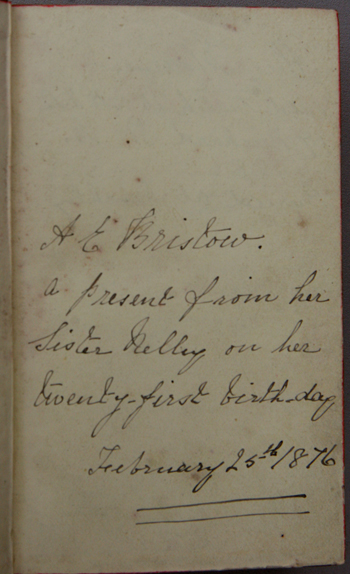 A E Bristow.
a present from her
Sister Nelly on her
twenty-first birth-day
February 25th 1876